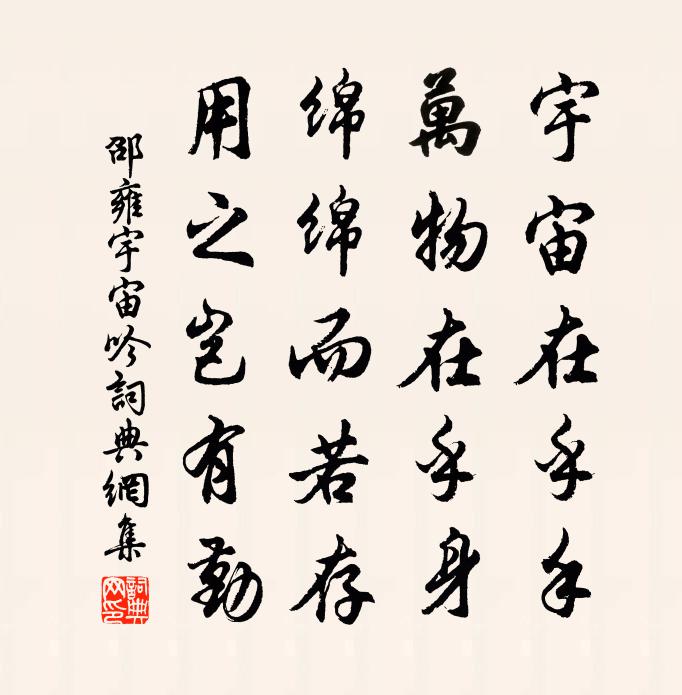 宇宙在乎手
萬物在乎身
綿綿而若存
用之豈有勤
邵雍宇宙吟詞典網集
詞典網印